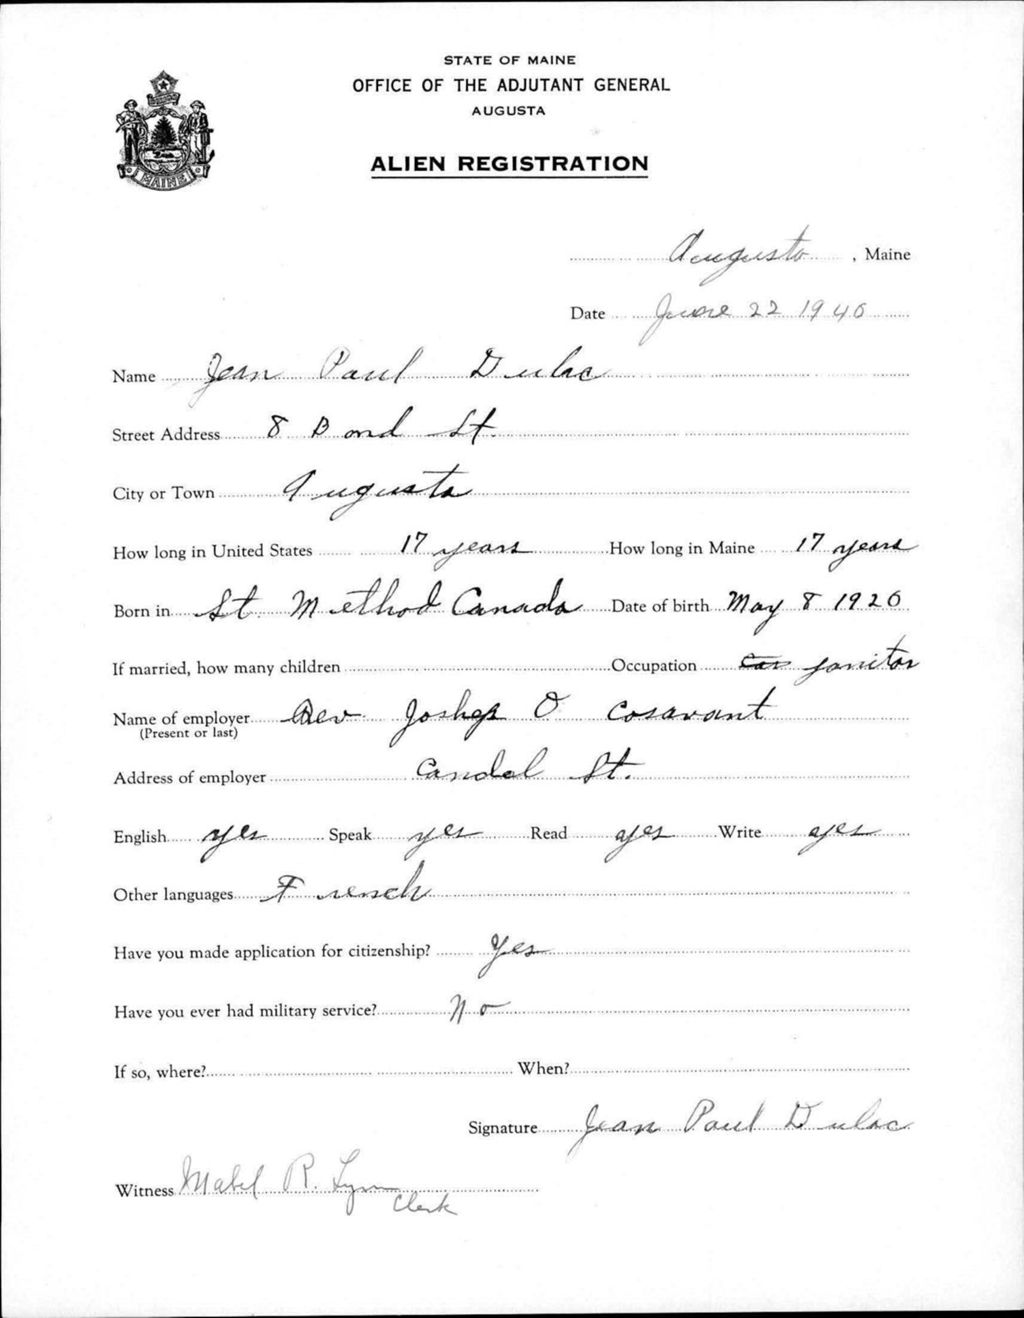 STATE OF MAINE
OFFICE OF THE ADJUTANT GENERAL
AUGUSTA
ALIEN REGISTRATION
MAINE
Augusta, Maine
Date June 22 1940
Name Jean Paul Dulac
Street Address 8 Bond St.
City or Town Augusta
How long in United States 17 years How long in Maine 17 years
Born in St. Method Canada Date of birth May 8 1920
If married, how many children Occupation janitor
Name of employer Rev Joshep O Cosavant
(Present or last)
Address of employer Candel St.
English yes Speak yes Read yes Write yes
Other languages French
Have you made application for citizenship? Yes
Have you ever had military service? No
If so, where? When?
Signature Jean Paul Dulac
Witness Mabel R. Lynn
Clerk